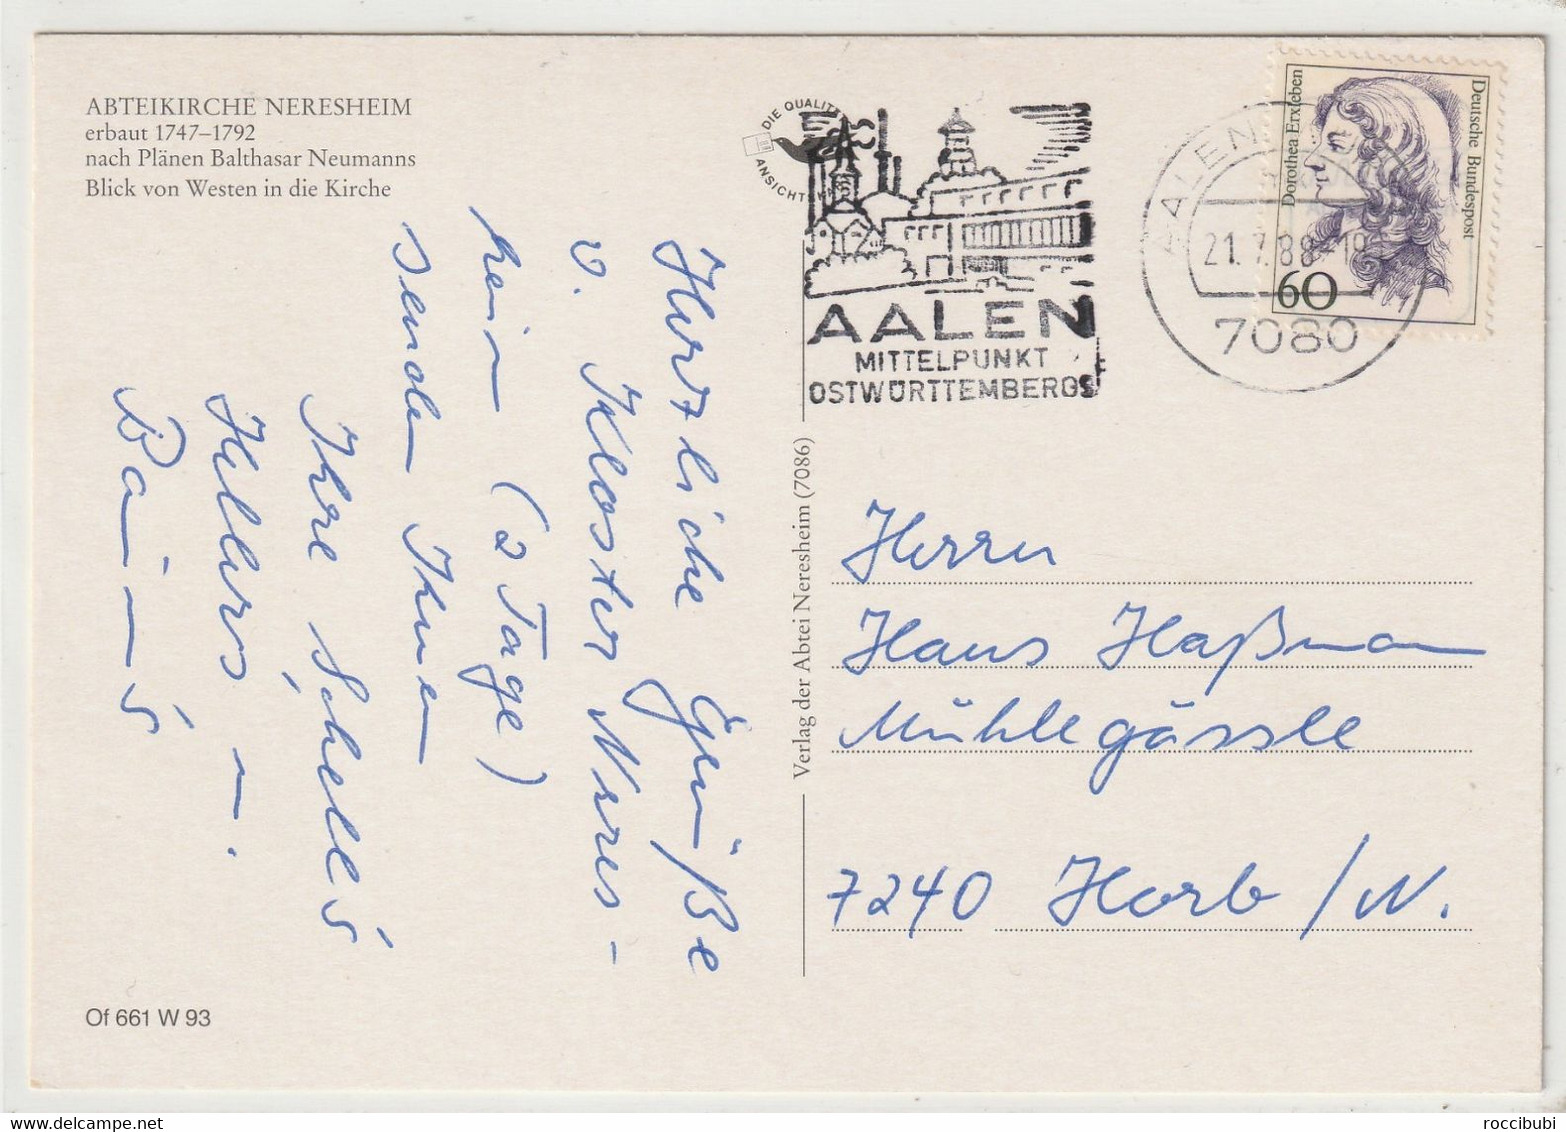 ABTEIKIRCHE NERESHEIM
erbaut 1747–1792
nach Plänen Balthasar Neumanns
Blick von Westen in die Kirche
Herzliche Grüße
v. Kloster Neres-
heim (2 Tage)
senden Ihnen
Ihre Schell's
Hellers –.
Of 661 W 93
Verlag der Abtei Neresheim (7086)
DIE QUALITÄ
ANSICHTSK
AALEN
MITTELPUNKT
OSTWÜRTTEMBERGS
AALEN
21.7.88-19
7080
Dorothea Erxleben
Deutsche Bundespost
60
Herrn
Hans Haßmann
Mühlegässle
7240 Horb/N.
roccibubi